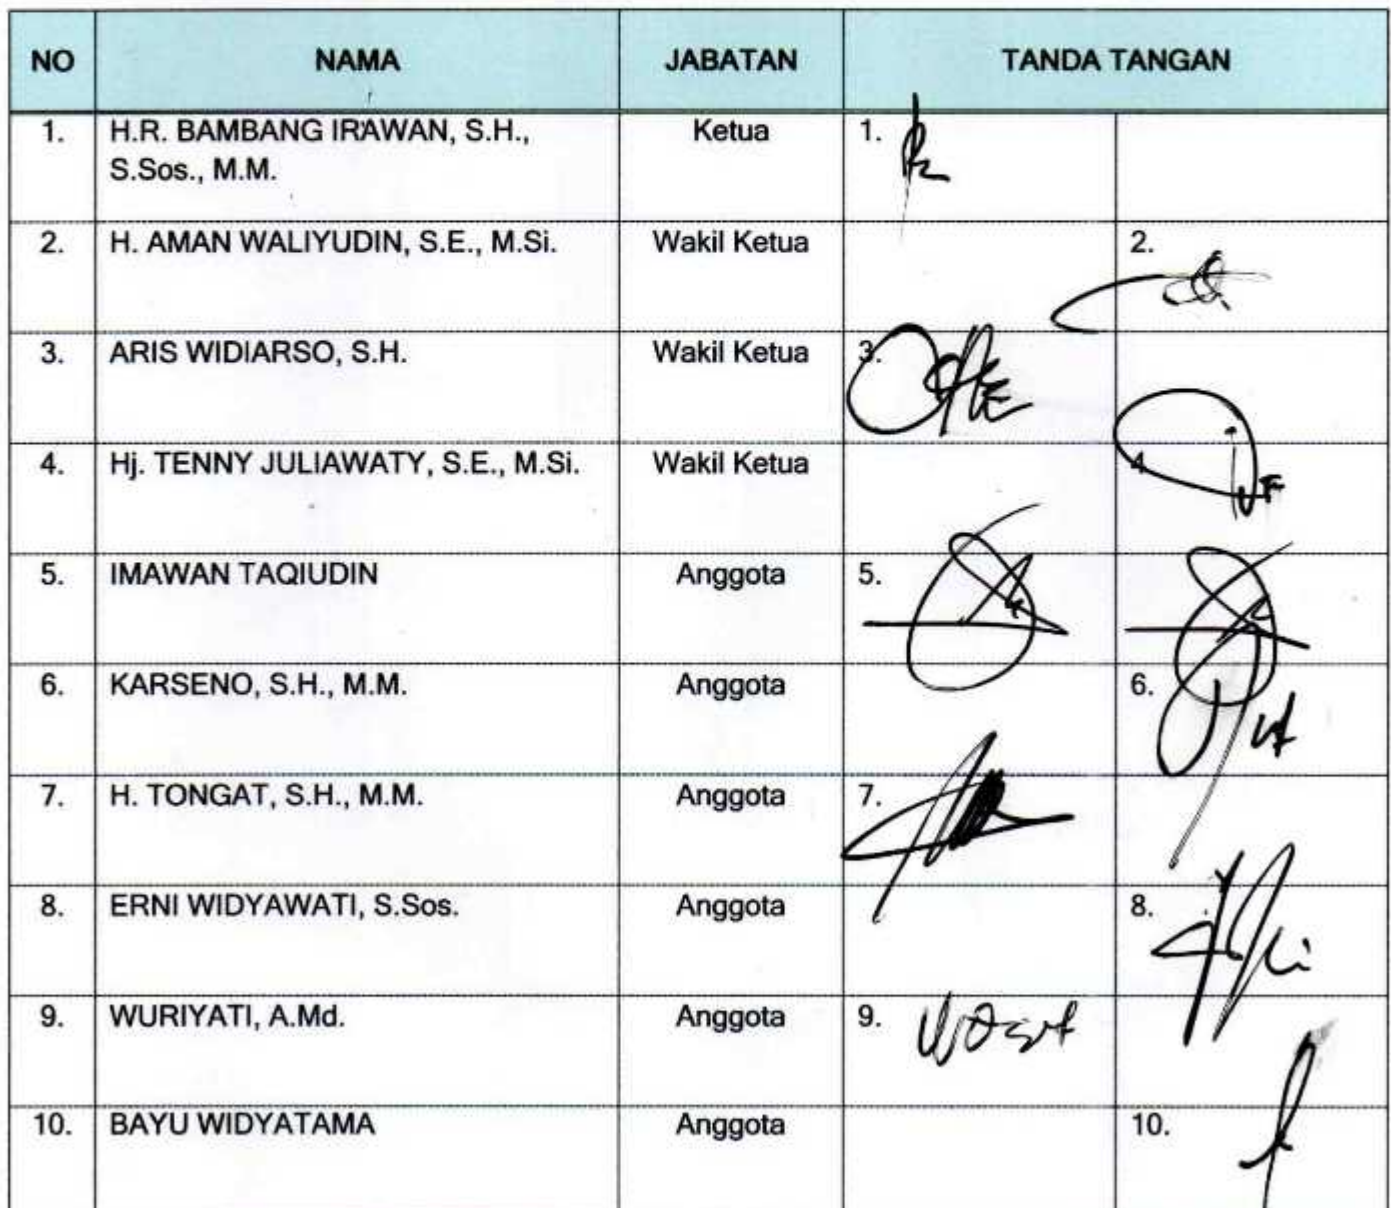 NO NAMA JABATAN TANDA TANGAN
1. H.R. BAMBANG IRAWAN, S.H., Ketua 1.
S.Sos., M.M.
2. H. AMAN WALIYUDIN, S.E., M.Si. Wakil Ketua 2.
3. ARIS WIDIARSO, S.H. Wakil Ketua 3.
4. Hj. TENNY JULIAWATY, S.E., M.Si. Wakil Ketua 4.
5. IMAWAN TAQIUDIN Anggota 5.
6. KARSENO, S.H., M.M. Anggota 6.
7. H. TONGAT, S.H., M.M. Anggota 7.
8. ERNI WIDYAWATI, S.Sos. Anggota 8.
9. WURIYATI, A.Md. Anggota 9.
10. BAYU WIDYATAMA Anggota 10.